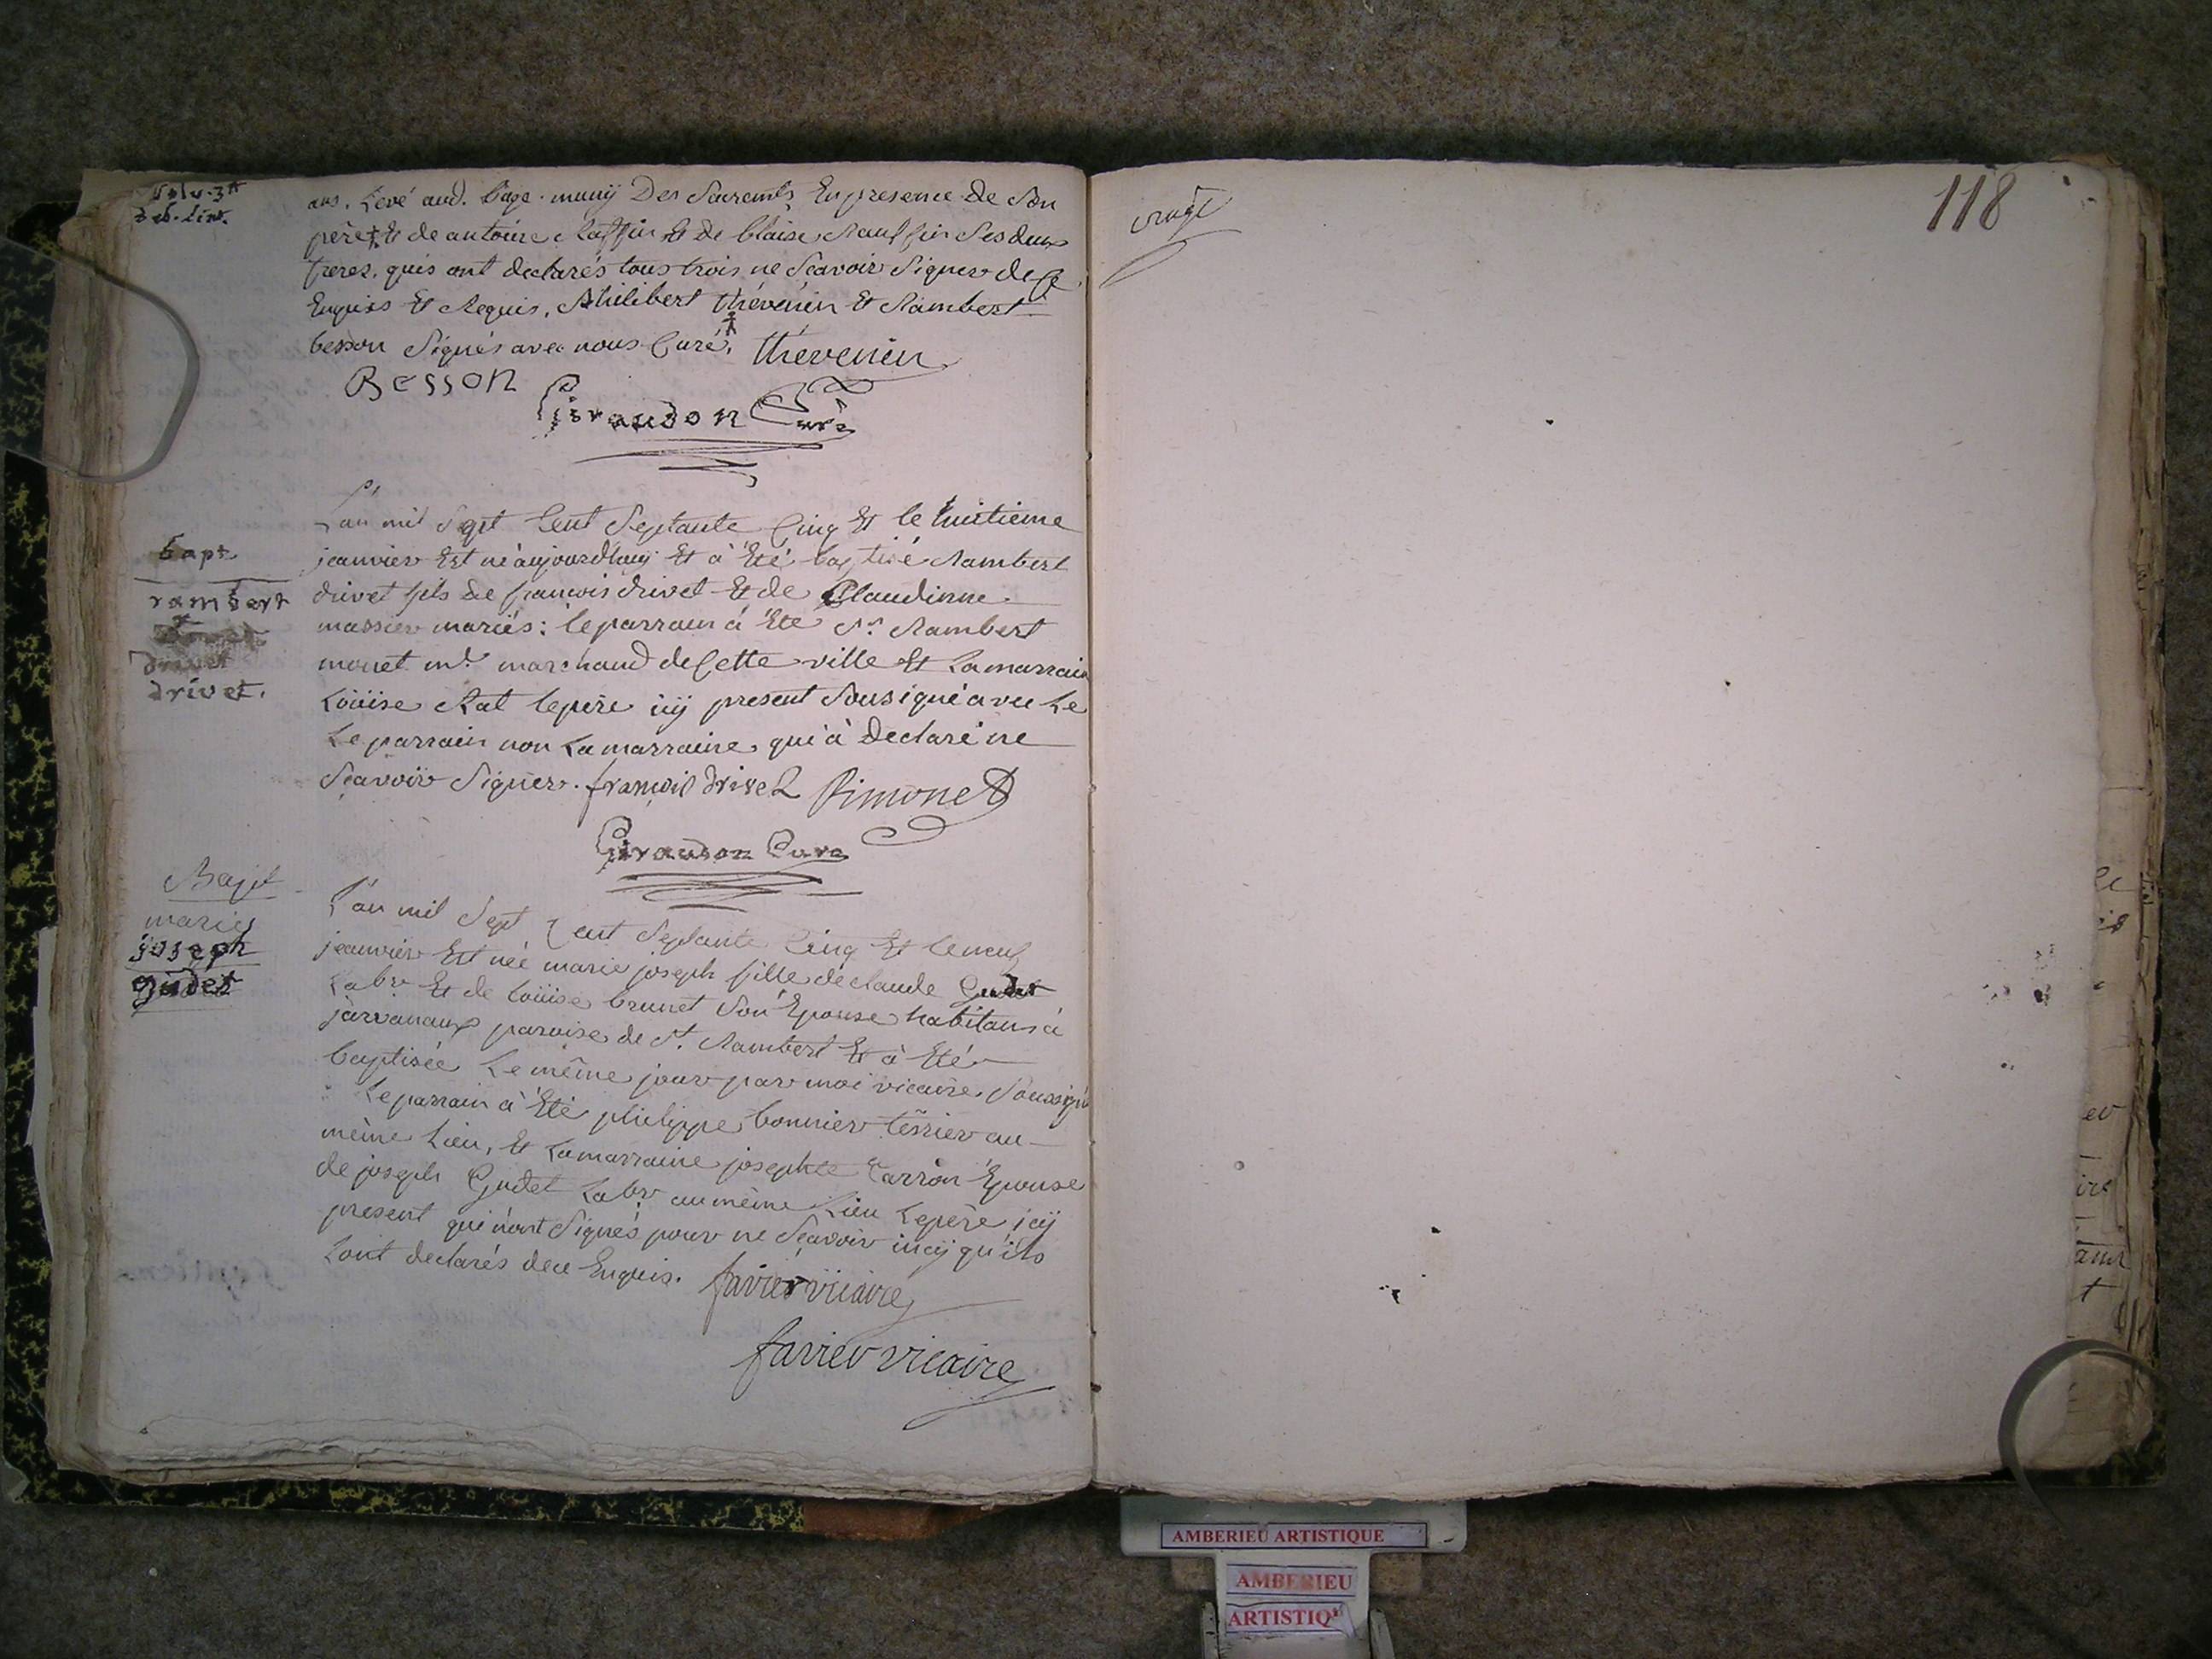 ans. Levé aud. lage. muny Des Sacremts En presence de Son
père, Et de antoine Raffin Et de blaise Rauffin Ses deux
freres. quis ont declarés tous trois ne Scavoir Signer de Ce
Enquis Et Requis, Philibert thévenin Et Rambert
besson Signés avec nous Curé. thevenin
Besson
Giraudon Curé
Bapt.
rambert
drivet
drivet.
L'an mil Sept Cent Septante Cinq Et le huitieme
jeanvier Est né aujourdhuy Et à Eté baptisé Rambert
drivet fils de francois drivet Et de Claudinne
massier mariés: le parrain à Eté Sr Rambert
monet md marchand de Cette ville Et La marrain
Loüise Rat le père icy present Sousigné avec Le
Le parrain non La marraine qui à declaré ne
Scavoir Signer. françois drivet Rimonet
Giraudon Curé
Bapt
marie
joseph
gudet
L'an mil Sept Cent Septante Cinq Et le neuf
jeanvier Est née marie joseph fille de claude Gudet
Labr Et de Loüise brunet Son Epouse habitans à
javanaux paroise de St. Rambert Et à Eté
baptisée Le même jour par moi vicaire Soussigné
Le parrain à Eté philippe bonnier au
même Lieu, Et La marraine josephte Carron Epouse
de joseph Gudet Labr au même Lieu Le père icy
present qui n'ont Signés pour ne Scavoir qu'ils
L'ont declarés de ce Enquis. favier vicaire
favier vicaire
118
AMBERIEU ARTISTIQUE
AMBERIEU
ARTISTIQU